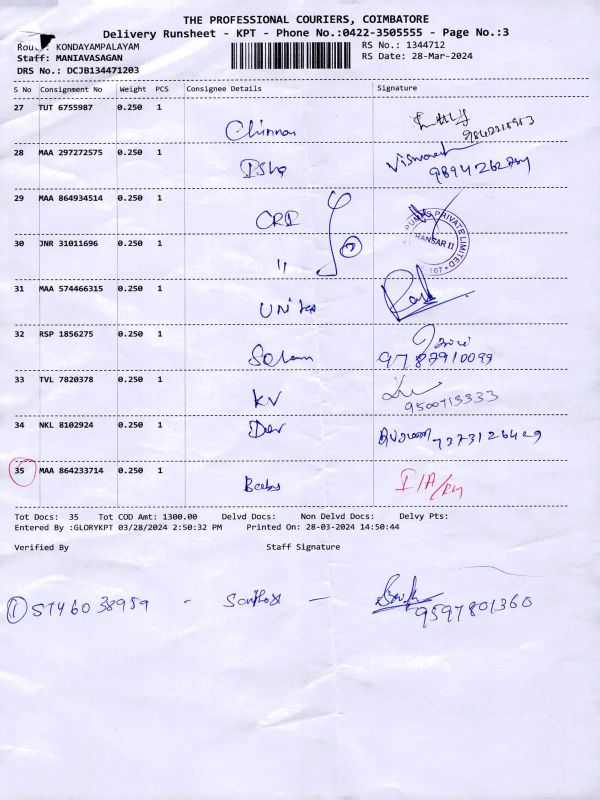 THE PROFESSIONAL COURIERS, COIMBATORE
Delivery Runsheet - KPT - Phone No.:0422-3505555 - Page No.:3
KONDAYAMPALAYAM RS No.: 1344712
Staff: MANIAVASAGAN RS Date: 28-Mar-2024
DRS No.: DCJB134471203
S No Consignment No Weight PCS Consignee Details Signature
27 TUT 6755987 0.250 1
28 MAA 297272575 0.250 1
Isha
29 MAA 864934514 0.250 1
CRI
PRIVATE LIMITED
30 JNR 31011696 0.250 1
"
31 MAA 574466315 0.250 1
32 RSP 1856275 0.250 1
9787910099
33 TVL 7820378 0.250 1
KV 9500713333
34 NKL 8102924 0.250 1
Dev 7373126429
35 MAA 864233714 0.250 1
I/A/
Tot Docs: 35 Tot COD Amt: 1300.00 Delvd Docs: Non Delvd Docs: Delvy Pts:
Entered By :GLORYKPT 03/28/2024 2:50:32 PM Printed On: 28-03-2024 14:50:44
Verified By Staff Signature
① STY6038959 - Santhosh - 9597801360